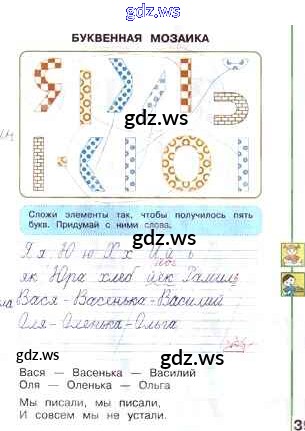 gdz.ws
БУКВЕННАЯ МОЗАИКА
gdz.ws
gdz.ws
Сложи элементы так, чтобы получилось пять
букв. Придумай с ними слова.
Я я Ю ю Х х Й й ь
як Юра хлеб йёк Рамиль
Вася - Васенька - Василий
Оля - Оленька - Ольга
gdz.ws
Вася — Васенька — Василий
Оля — Оленька — Ольга
gdz.ws
Мы писали, мы писали,
И совсем мы не устали.
gdz.ws